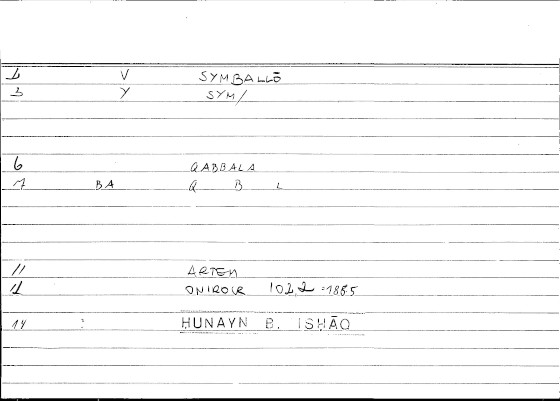 1 V SYMBALLŌ
3 Y SYM/
6 QABBALA
7 BA Q B L
11 ARTEM
ONIROCR 102,2 :1885
14 : HUNAYN B. ISHĀQ